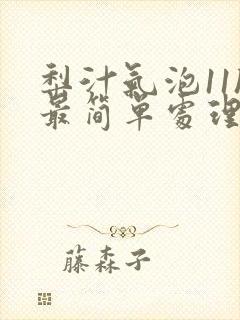 梨汁氣泡11M
最简單處理
藤森子